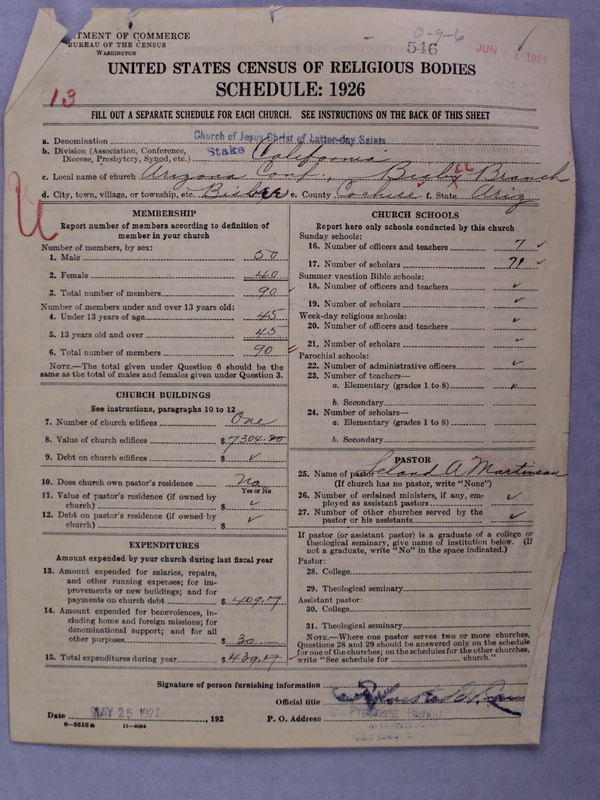 DEPARTMENT OF COMMERCE
BUREAU OF THE CENSUS
WASHINGTON
0-9-6
546
JUN 1927
UNITED STATES CENSUS OF RELIGIOUS BODIES
SCHEDULE: 1926
13
FILL OUT A SEPARATE SCHEDULE FOR EACH CHURCH. SEE INSTRUCTIONS ON THE BACK OF THIS SHEET
a. Denomination Church of Jesus Christ of Latter-day Saints
b. Division (Association, Conference, Diocese, Presbytery, Synod, etc.) Stake California
c. Local name of church Arizona Conf., Branch
d. City, town, village, or township, etc. Bisbee e. County Cochise f. State Ariz
MEMBERSHIP
Report number of members according to definition of member in your church
Number of members, by sex:
1. Male 50
2. Female 40
3. Total number of members 90
Number of members under and over 13 years old:
4. Under 13 years of age 45
5. 13 years old and over 45
6. Total number of members 90
NOTE.—The total given under Question 6 should be the same as the total of males and females given under Question 3.
CHURCH BUILDINGS
See instructions, paragraphs 10 to 12
7. Number of church edifices One
8. Value of church edifices $7304.80
9. Debt on church edifices $ ✓
10. Does church own pastor's residence No
Yes or No
11. Value of pastor's residence (if owned by church) $ ✓
12. Debt on pastor's residence (if owned by church) $ ✓
EXPENDITURES
Amount expended by your church during last fiscal year
13. Amount expended for salaries, repairs, and other running expenses; for improvements or new buildings; and for payments on church debt $ 409.17
14. Amount expended for benevolences, including home and foreign missions; for denominational support; and for all other purposes $ 30
15. Total expenditures during year $439.17
CHURCH SCHOOLS
Report here only schools conducted by this church
Sunday schools:
16. Number of officers and teachers 7 ✓
17. Number of scholars ✓
Summer vacation Bible schools:
18. Number of officers and teachers ✓
19. Number of scholars ✓
Week-day religious schools:
20. Number of officers and teachers ✓
21. Number of scholars ✓
Parochial schools:
22. Number of administrative officers ✓
23. Number of teachers—
a. Elementary (grades 1 to 8) ✓
b. Secondary
24. Number of scholars—
a. Elementary (grades 1 to 8)
b. Secondary
PASTOR
25. Name of pastor Leland A Martineau
(If church has no pastor, write "None")
26. Number of ordained ministers, if any, employed as assistant pastors ✓
27. Number of other churches served by the pastor or his assistants ✓
If pastor (or assistant pastor) is a graduate of a college or theological seminary, give name of institution below. (If not a graduate, write "No" in the space indicated.)
Pastor:
28. College
29. Theological seminary
Assistant pastor:
30. College
31. Theological seminary
NOTE.—Where one pastor serves two or more churches, Questions 28 and 29 should be answered only on the schedule for one of the churches; on the schedules for the other churches, write "See schedule for church."
Signature of person furnishing information
Official title
Date MAY 25 1927, 192 P. O. Address
8-5515a 11-9064